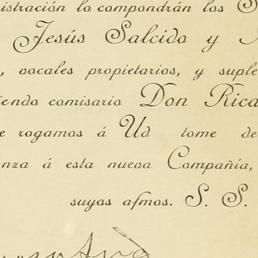 istración lo compondrán los S
Jesús Salcido y
, vocales propietarios, y suple
iendo comisario Don Rica
e rogamos á Ud tome de
anza á esta nueva Compañía,
suyos afmos. S. S.